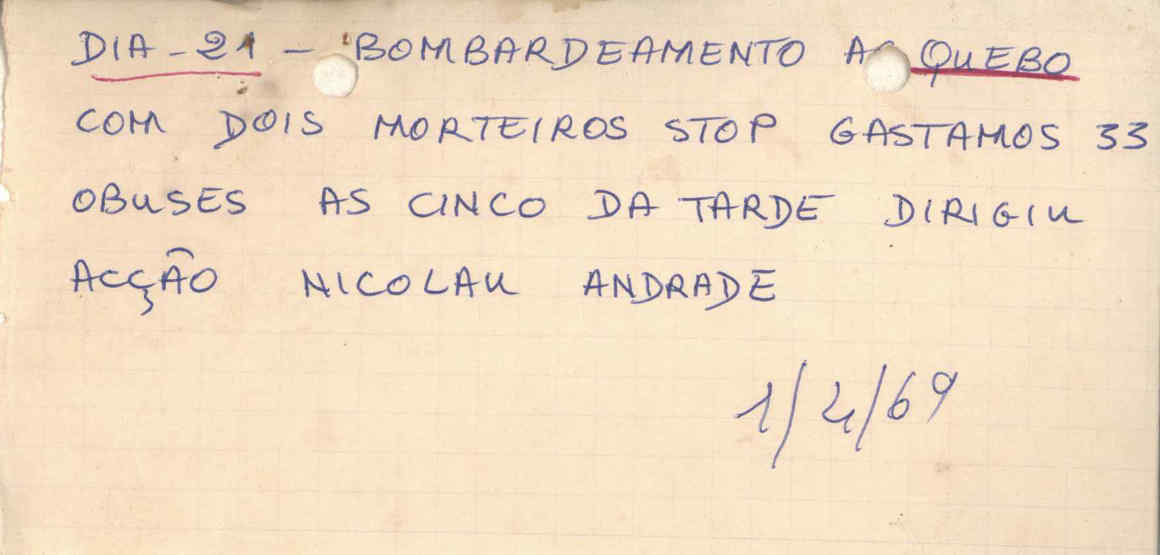 DIA - 21 - BOMBARDEAMENTO AO QUEBO
COM DOIS MORTEIROS STOP GASTAMOS 33
OBUSES AS CINCO DA TARDE DIRIGIU
ACÇÃO NICOLAU ANDRADE
1/4/69